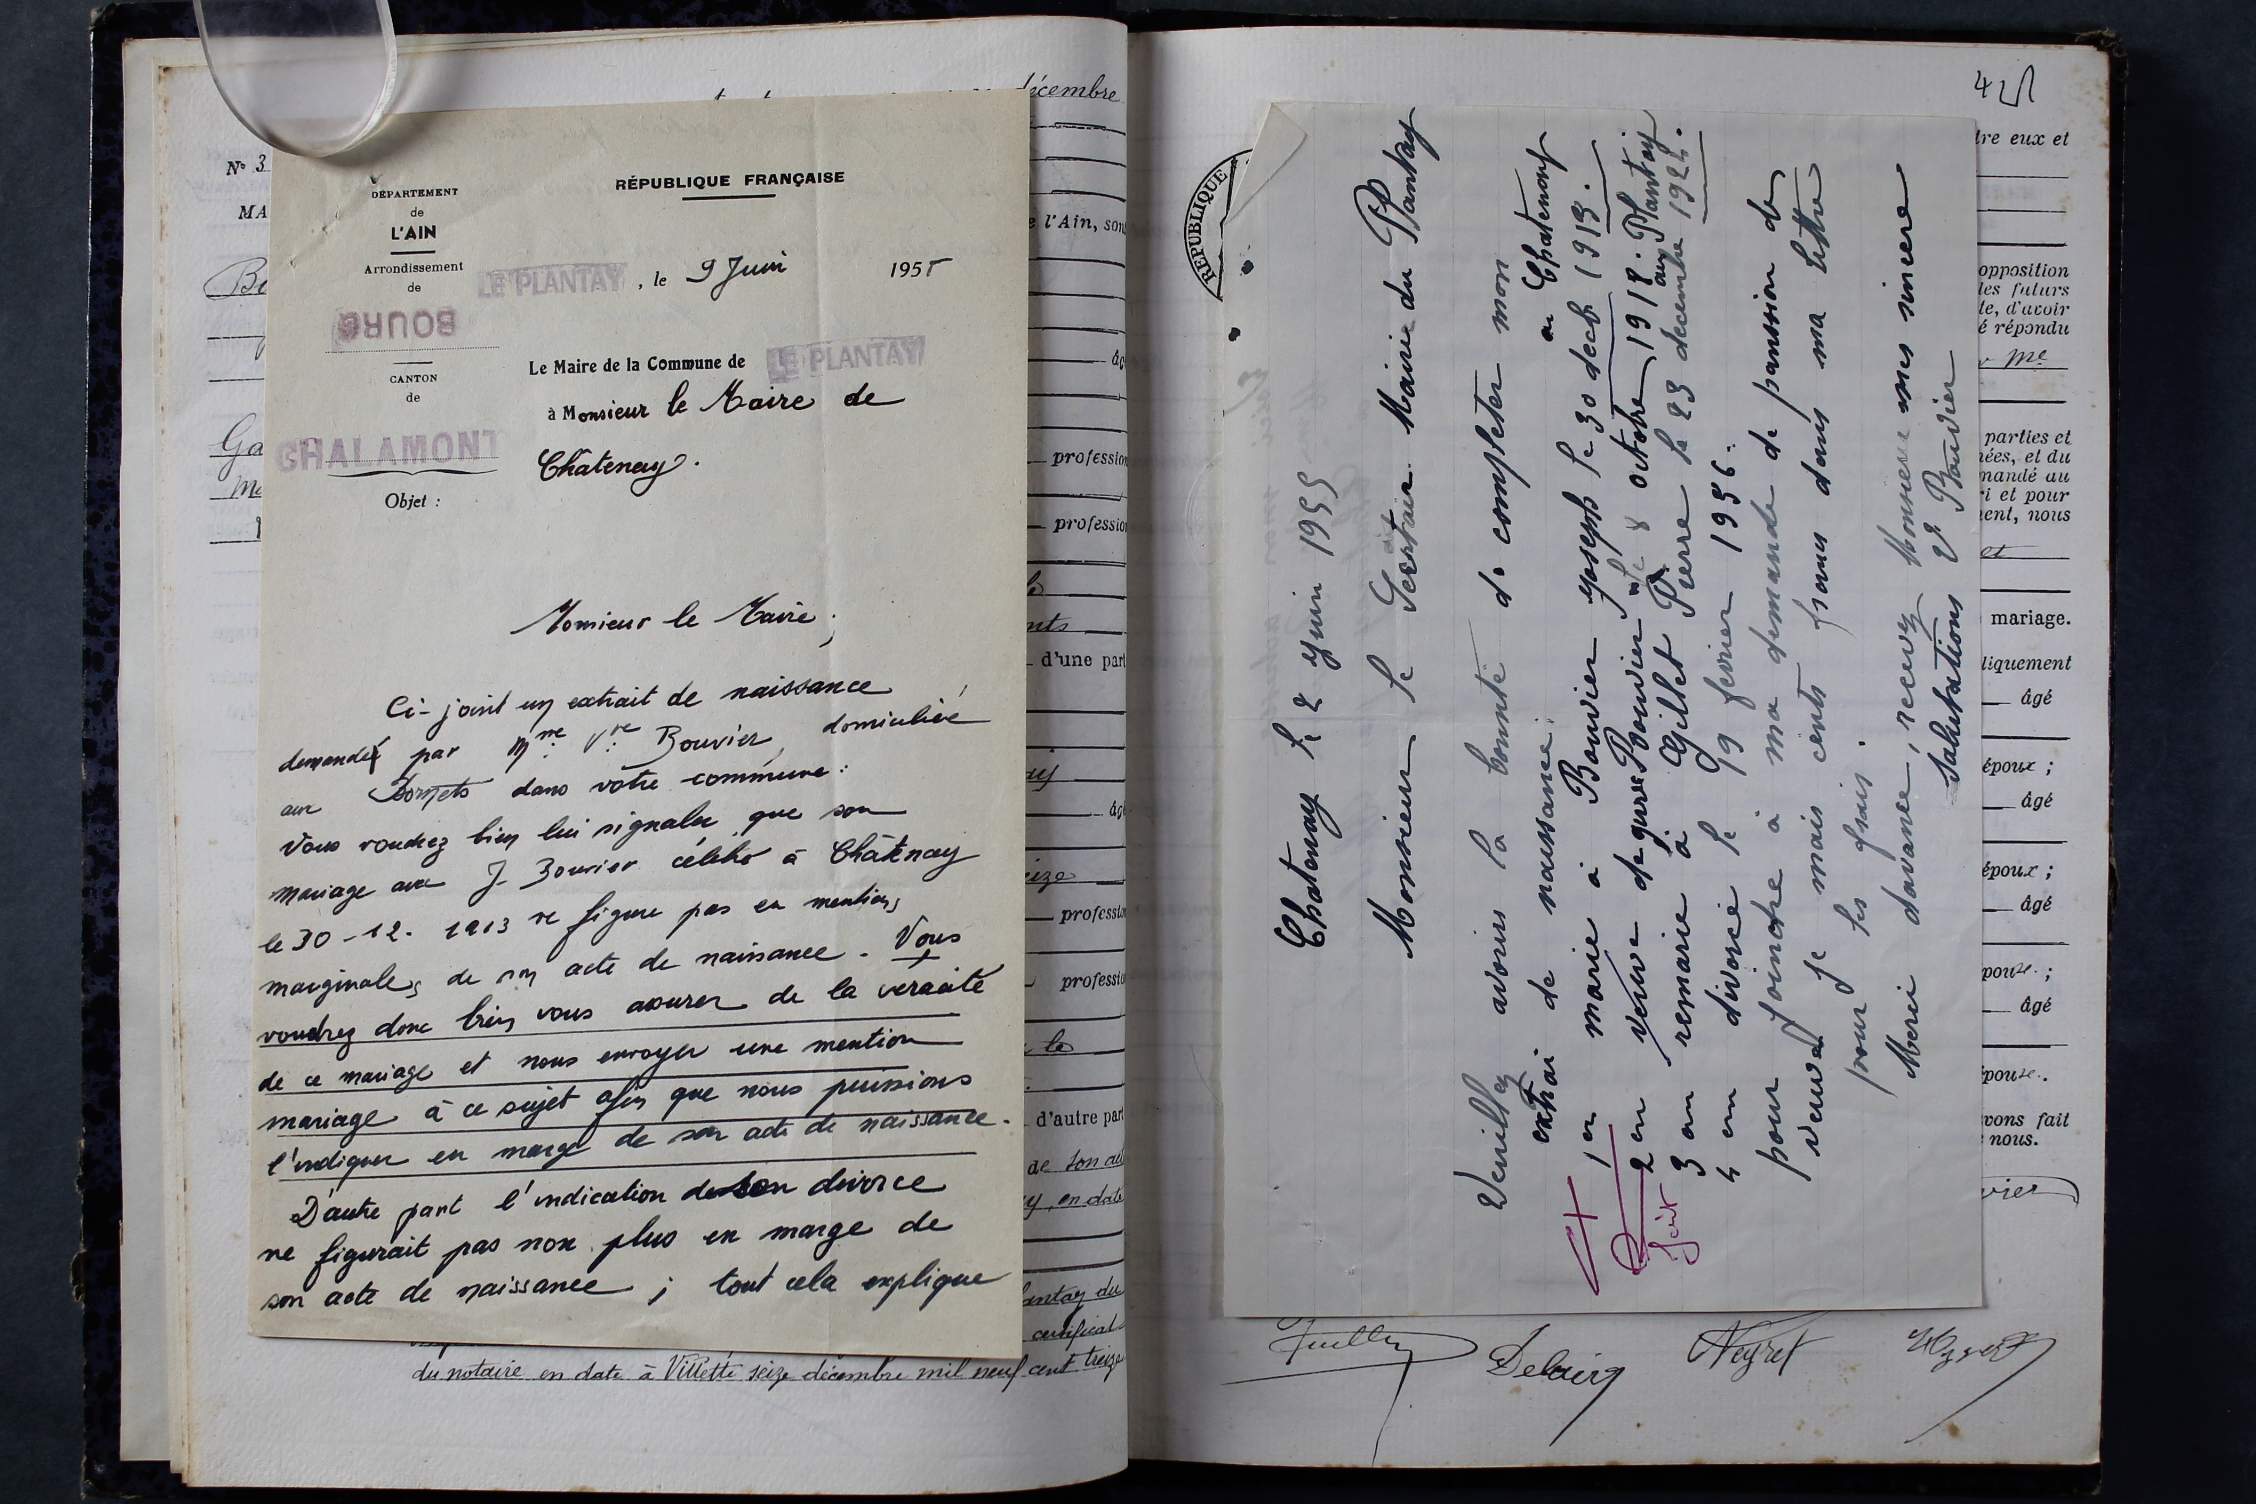 décembre
N° 3
MA
Be
Ga
DÉPARTEMENT
de
L'AIN
Arrondissement
de
BOURG
CANTON
de
CHALAMONT
Objet :
RÉPUBLIQUE FRANÇAISE
LE PLANTAY, le 9 Juin 1955
Le Maire de la Commune de LE PLANTAY
à Monsieur le Maire de
Châtenay.
Monsieur le Maire ;
Ci-joint un extrait de naissance
demandé par Mme Vve Bouvier, domiciliée
aux dans votre commune :
Vous voudrez bien lui signaler que son
mariage avec J. Bouvier célébré à Châtenay
le 30-12-1913 ne figure pas en mentions
marginales de son acte de naissance. Vous
voudrez donc bien vous assurer de la véracité
de ce mariage et nous envoyer une mention
mariage à ce sujet afin que nous puissions
l'indiquer en marge de son acte de naissance.
D'autre part l'indication de son divorce
ne figurait pas non plus en marge de
son acte de naissance ; tout cela explique
e l'Ain, son
profession
profession
nts
d'une part
âgé
eize
profession
profession
le
d'autre part
de son
y, en date
lantay du
certificat
du notaire en date à Villette seize décembre mil neuf cent treize
RÉPUBLIQUE
Chatenay le 2 juin 1955
Monsieur le Secrétaire Mairie du Plantay
Veuillez avoir la bonnté de completer mon
extrai de naissance.
1 er marié à Bouvier joseph le 30 decb 1913. a Chatenay
2 em veuve de guerre Bouvier le 8 octobre 1918.
3 em remarié à Gillet Pierre le 23 decembre 1922. au Plantay
4 em divorcé le 19 fevrier 1936.
pour joindre à ma demande de panssion de
veuve je mais cents francs dans ma lettre
pour les frais.
Merci davance, recevez Monsieur mes sincere
Salutations Ve Bouvier
tre eux et
opposition
les futurs
te, d'avoir
é répondu
me
parties et
nées, et du
mandé au
ri et pour
ment, nous
et
mariage.
liquement
âgé
époux ;
âgé
époux ;
âgé
pouse ;
âgé
épouse.
vons fait
nous.
vier
Delaire
Neyret